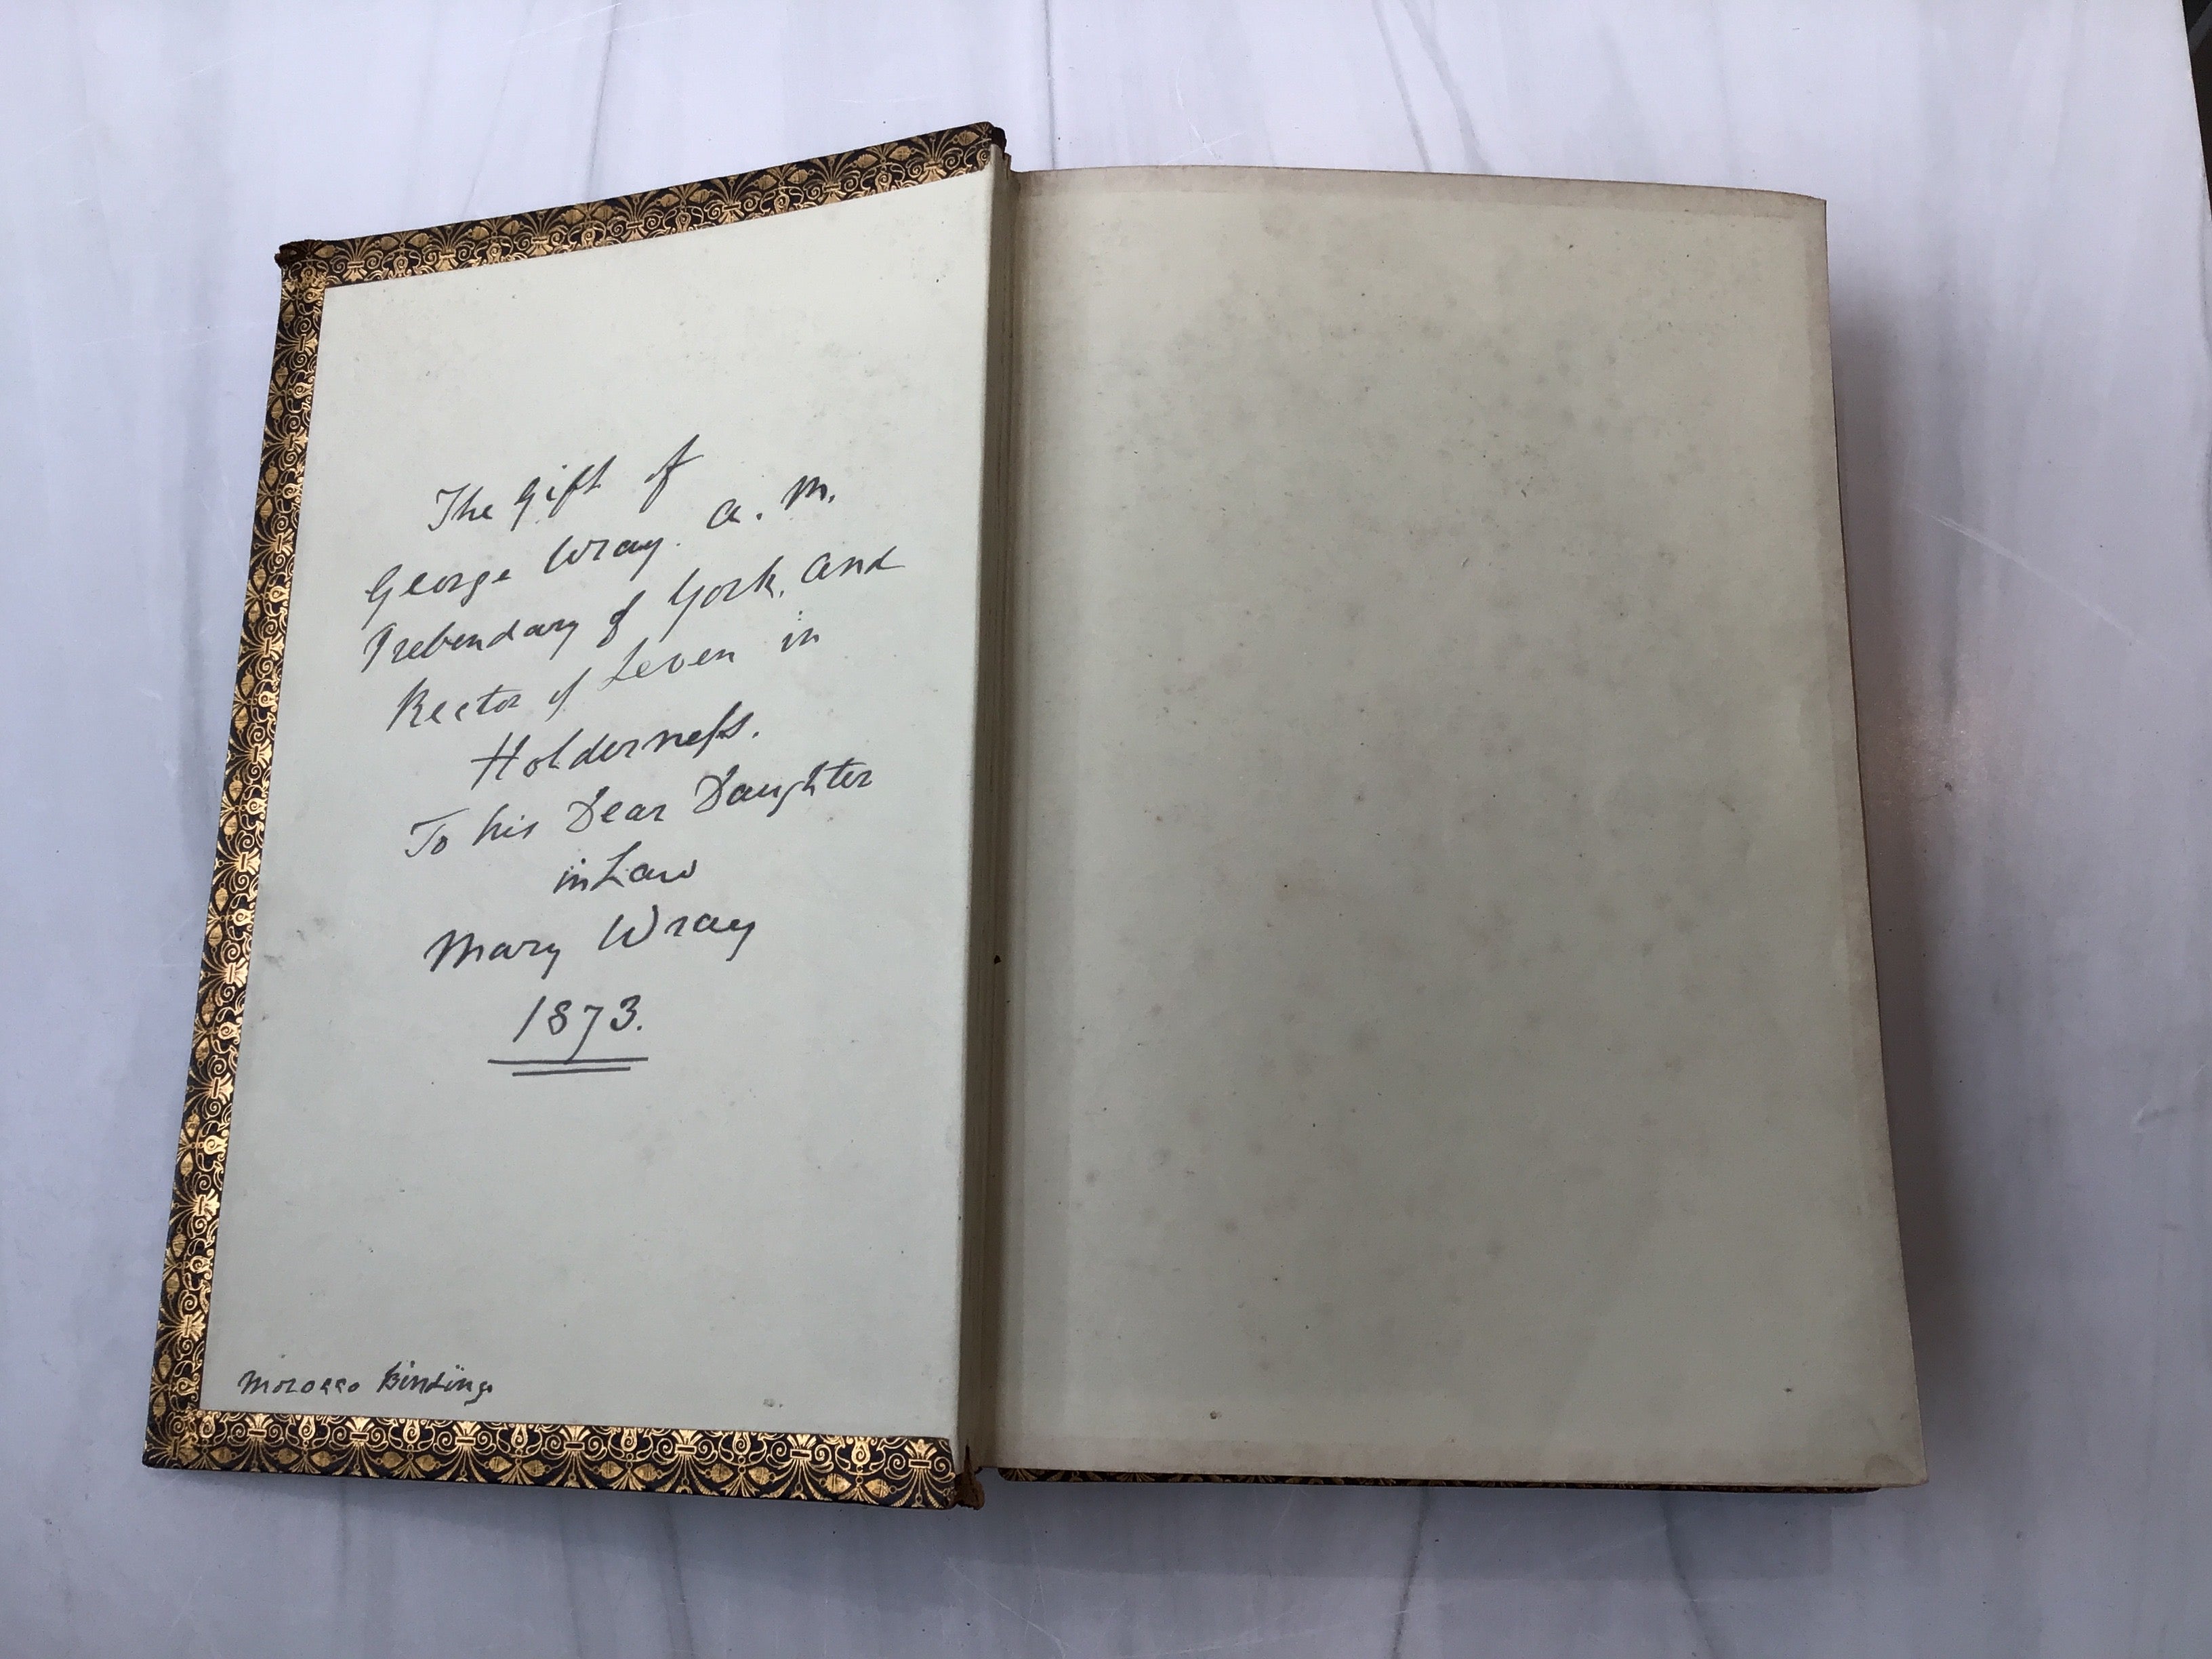 The Gift of
George Wray. A. M.
Prebendary of York, and
Rector of Leven in
Holderneſs.
To his Dear Daughter
in Law
Mary Wray
1873.
Morocco Bindings